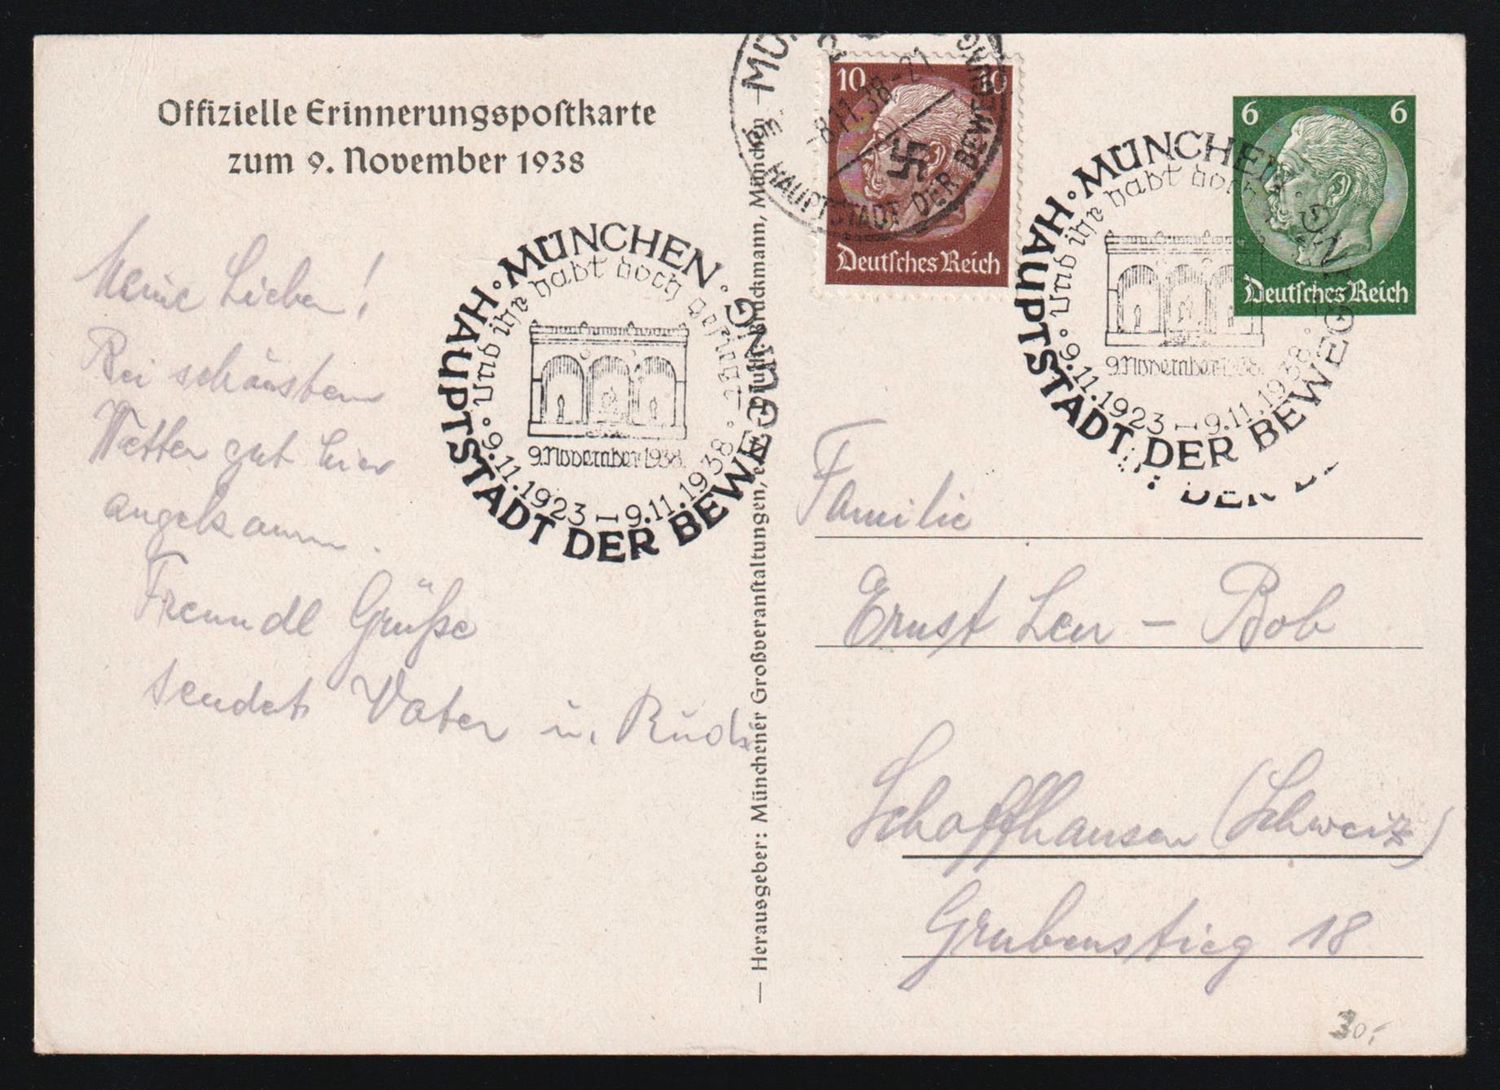 Offizielle Erinnerungspostkarte
zum 9. November 1938
Meine Lieben!
Bei schönstem
Wetter gut hier
angekommen.
Freundl Grüße
sendet Vater u. Rudi
MÜNCHEN · HAUPTSTADT DER BEWEGUNG ·
Und ihr habt doch gesiegt
9. November 1938.
9.11.1923 — 9.11.1938
— Herausgeber: Münchener Großveranstaltungen, Bruckmann, München
MÜN
HAUPTSTADT DER BEWEGUNG
-8.11.38-21
10 10
Deutsches Reich
6 6
Deutsches Reich
MÜNCHEN · HAUPTSTADT DER BEWEGUNG ·
Und ihr habt doch
9. November 1938.
9.11.1923 — 9.11.1938
Familie
Ernst Leu – Bob
Schaffhausen (Schweiz)
Grubenstieg 18
30,-